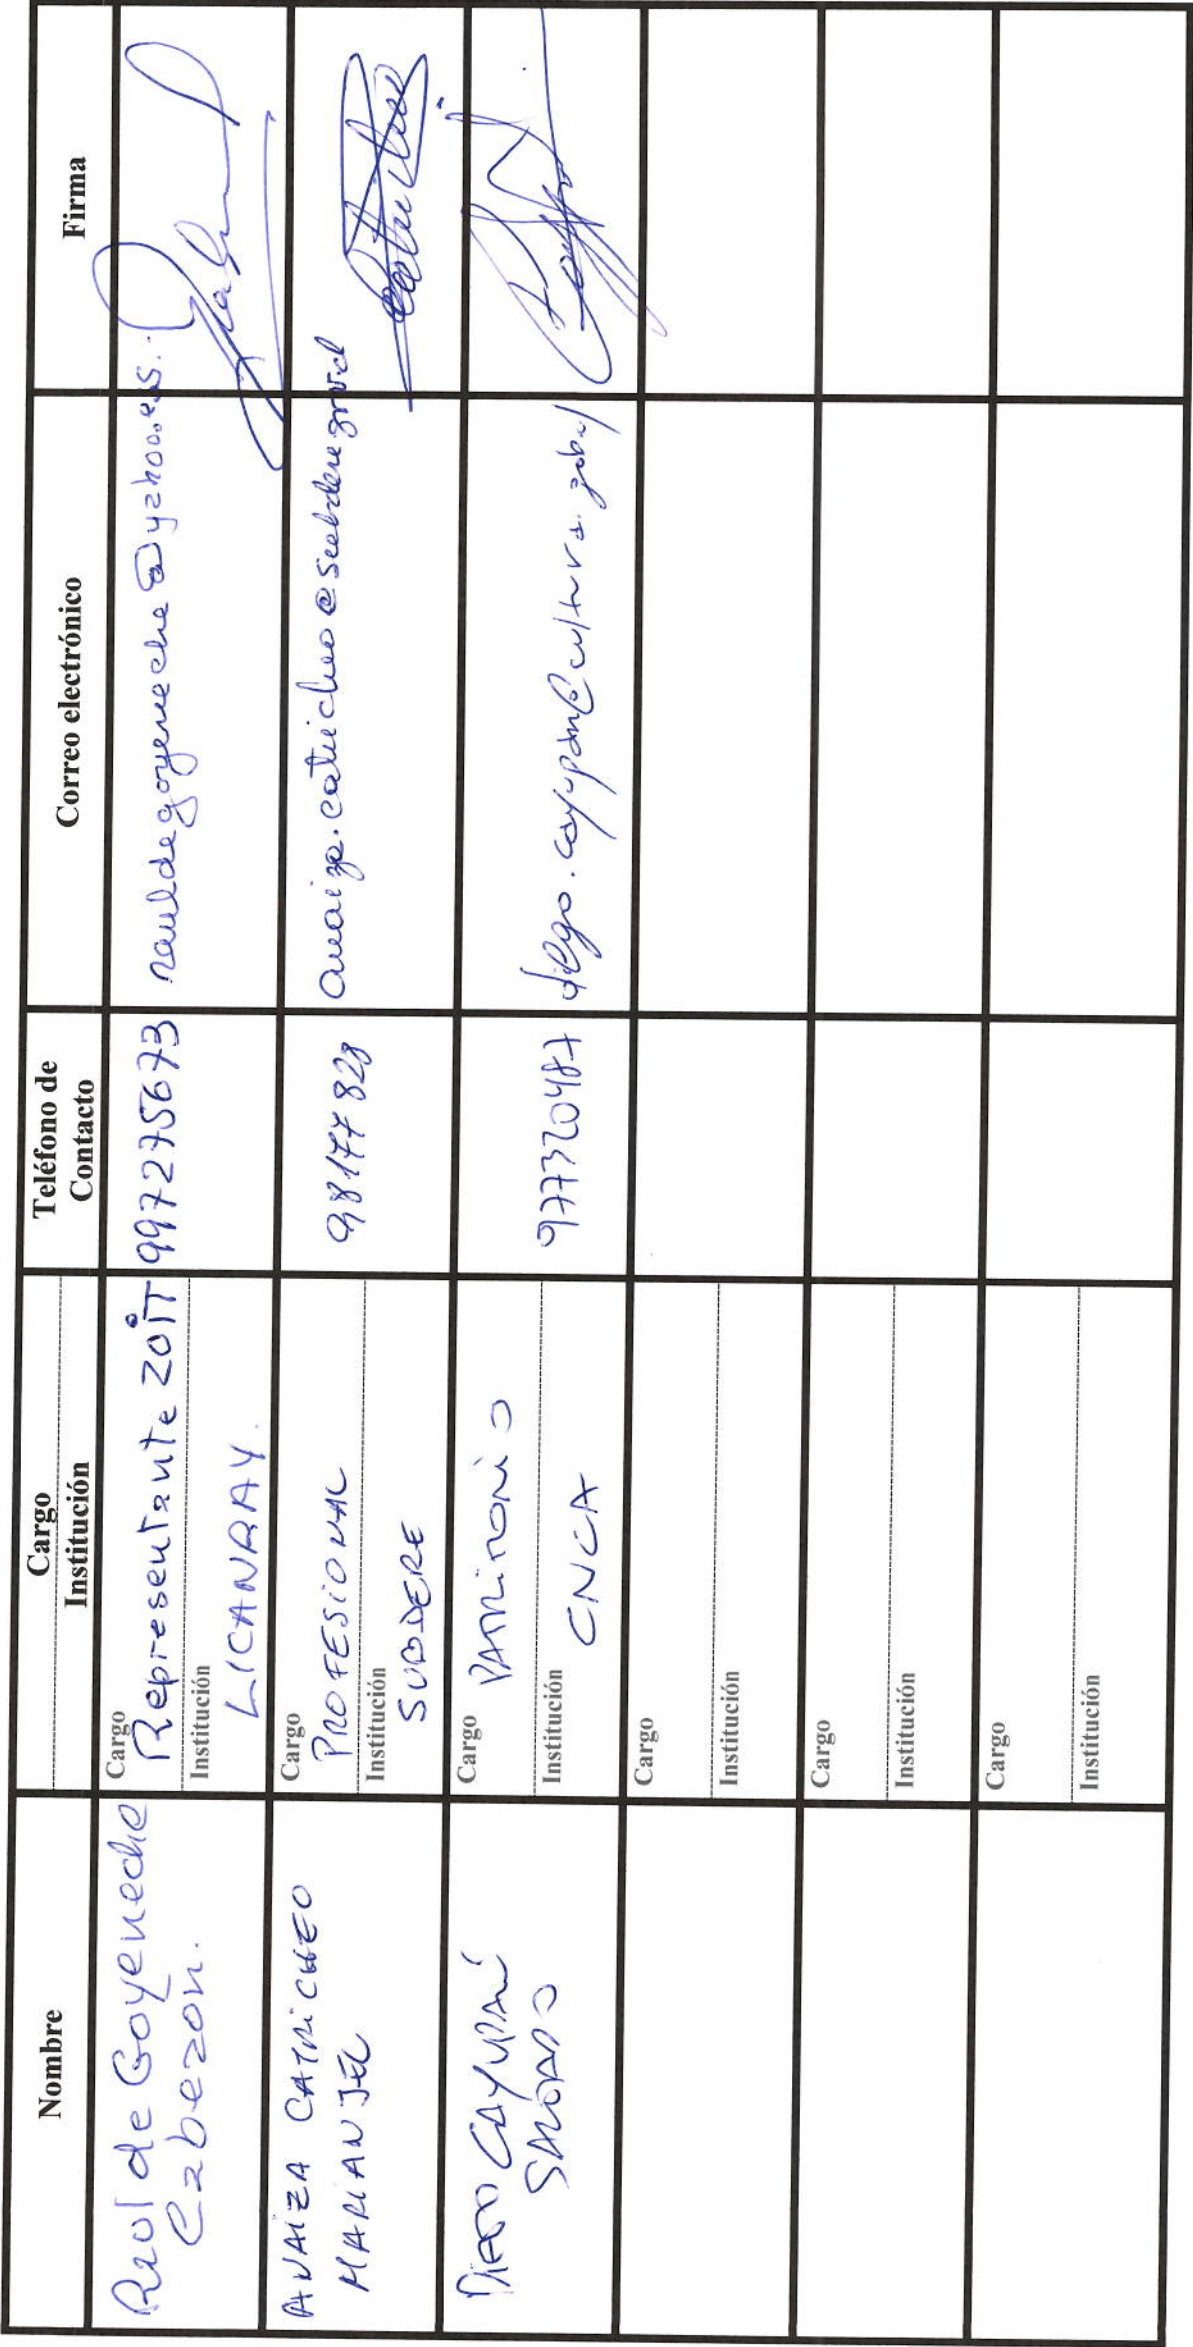 Nombre
Cargo
Institución
Teléfono de
Contacto
Correo electrónico
Firma
Raul de Goyeneche
Cabezon.
Cargo
Representante ZOIT
Institución
LICANRAY.
997275673
rauldegoyeneche@yahoo.es.
ANAIZA CATRICHEO
MARIANJEL
Cargo
PROFESIONAL
Institución
SUBDERE
98177828
anaiza.catricheo@subdere.gov.cl
DIEGO CAYUPAN
Cargo
PATRIMONIO
Institución
CNCA
977320487
diego.cayupan@cultura.gob.cl
Cargo
Institución
Cargo
Institución
Cargo
Institución